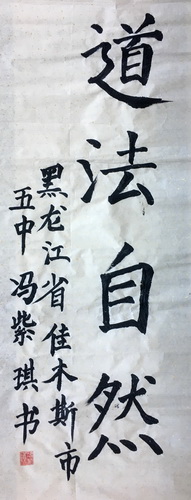 道法自然
黑龙江省佳木斯市
五中冯紫琪书